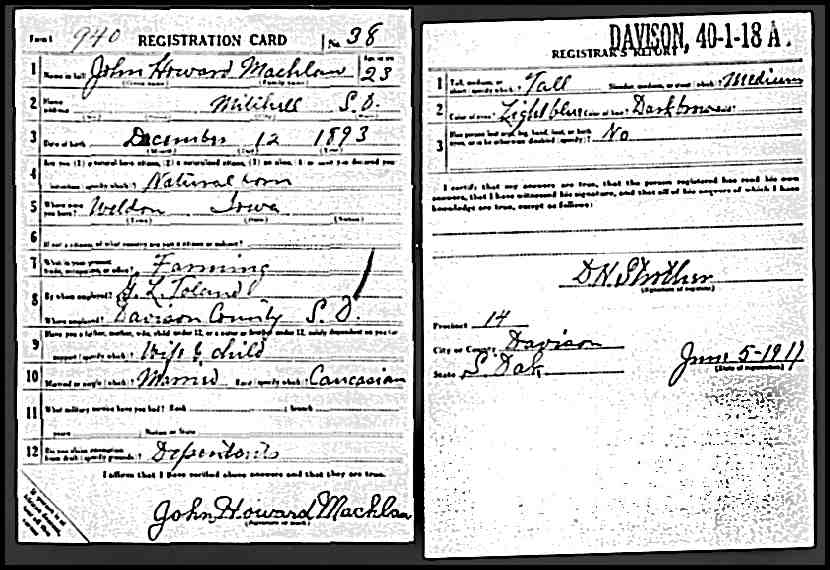 Form 1 940 REGISTRATION CARD No. 38
1 Name in full John Howard Machlan Age in yrs 23
(Given name) (Family name)
2 Home address Mitchell S.D.
3 Date of birth December 12 1893
(Month) (Day) (Year)
4 Are you (1) a natural born citizen, (2) a naturalized citizen, (3) an alien, (4) or have you declared your
intention (specify which)? Natural born
5 Where were you born? Weldon Iowa
(Town) (State) (Nation)
6 If not a citizen, of what country are you a citizen or subject?
7 What is your present trade, occupation, or office? Farming
8 By whom employed? G. L. Toland
Where employed? Davison County S. D.
9 Have you a father, mother, wife, child under 12, or a sister or brother under 12, solely dependent on you for
support (specify which)? Wife & child
10 Married or single (which)? Married Race (specify which)? Caucasian
11 What military service have you had? Rank branch
years Nation or State
12 Do you claim exemption from draft (specify grounds)? Dependents
I affirm that I have verified above answers and that they are true.
John Howard Machlan
(Signature or mark)
DAVISON, 40-1-18 A.
REGISTRAR'S REPORT
1 Tall, medium, or short (specify which)? Tall Slender, medium, or stout (which)? Medium
2 Color of eyes? Light blue Color of hair? Dark brown
3 Has person lost arm, leg, hand, foot, or both eyes, or is he otherwise disabled (specify)? No
I certify that my answers are true, that the person registered has read his own
answers, that I have witnessed his signature, and that all of his answers of which I have
knowledge are true, except as follows:
D H Strother
(Signature of registrar)
Precinct 14
City or County Davison
State S. Dak June 5-1917
(Date of registration)